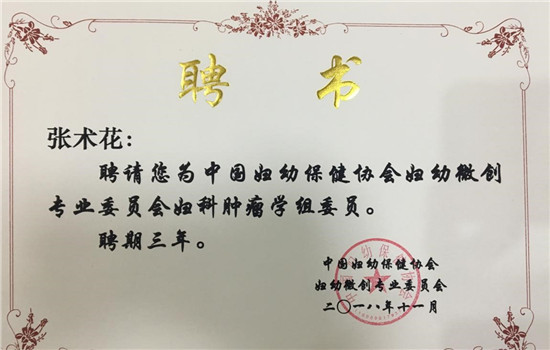 聘书
张术花：
聘请您为中国妇幼保健协会妇幼微创
专业委员会妇科肿瘤学组委员。
聘期三年。
中国妇幼保健协会
妇幼微创专业委员会
二〇一八年十一月